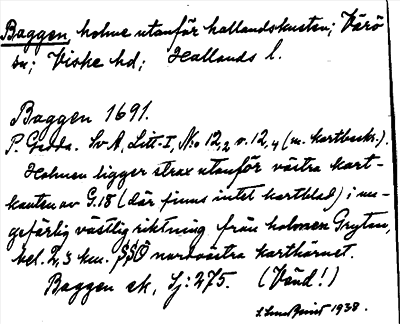 Baggen, holme utanför hallandskusten; Värö
sn; Viske hd; Hallands l.
Baggen 1691.
P. Gedda. Sv A, Litt. I, No 12,2 o. 12,4 (m. kartbeskr.).
Holmen ligger strax utanför västra kart-
kanten av G.18 (där finns intet kartblad) i un-
gefärlig västlig riktning från holmen Gryten,
bel. 2,3 km. SSO nordvästra karthörnet.
Baggen ek, Sj: 275. (Vänd!)
1938.